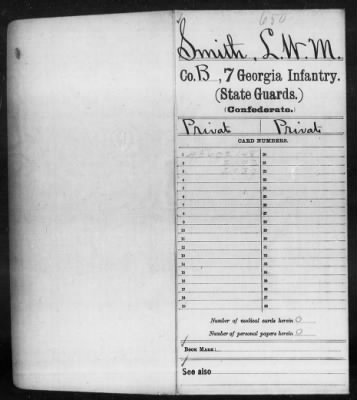 650
Smith, L. W. M.
Co. B, 7 Georgia Infantry.
(State Guards.)
(Confederate.)
Privat Privat
CARD NUMBERS.
1 20
2 21
3 22
4 23
5 24
6 25
7 26
8 27
9 28
10 29
11 30
12 31
13 32
14 33
15 34
16 35
17 36
18 37
19 38
Number of medical cards herein 0
Number of personal papers herein 0
BOOK MARK:
See also